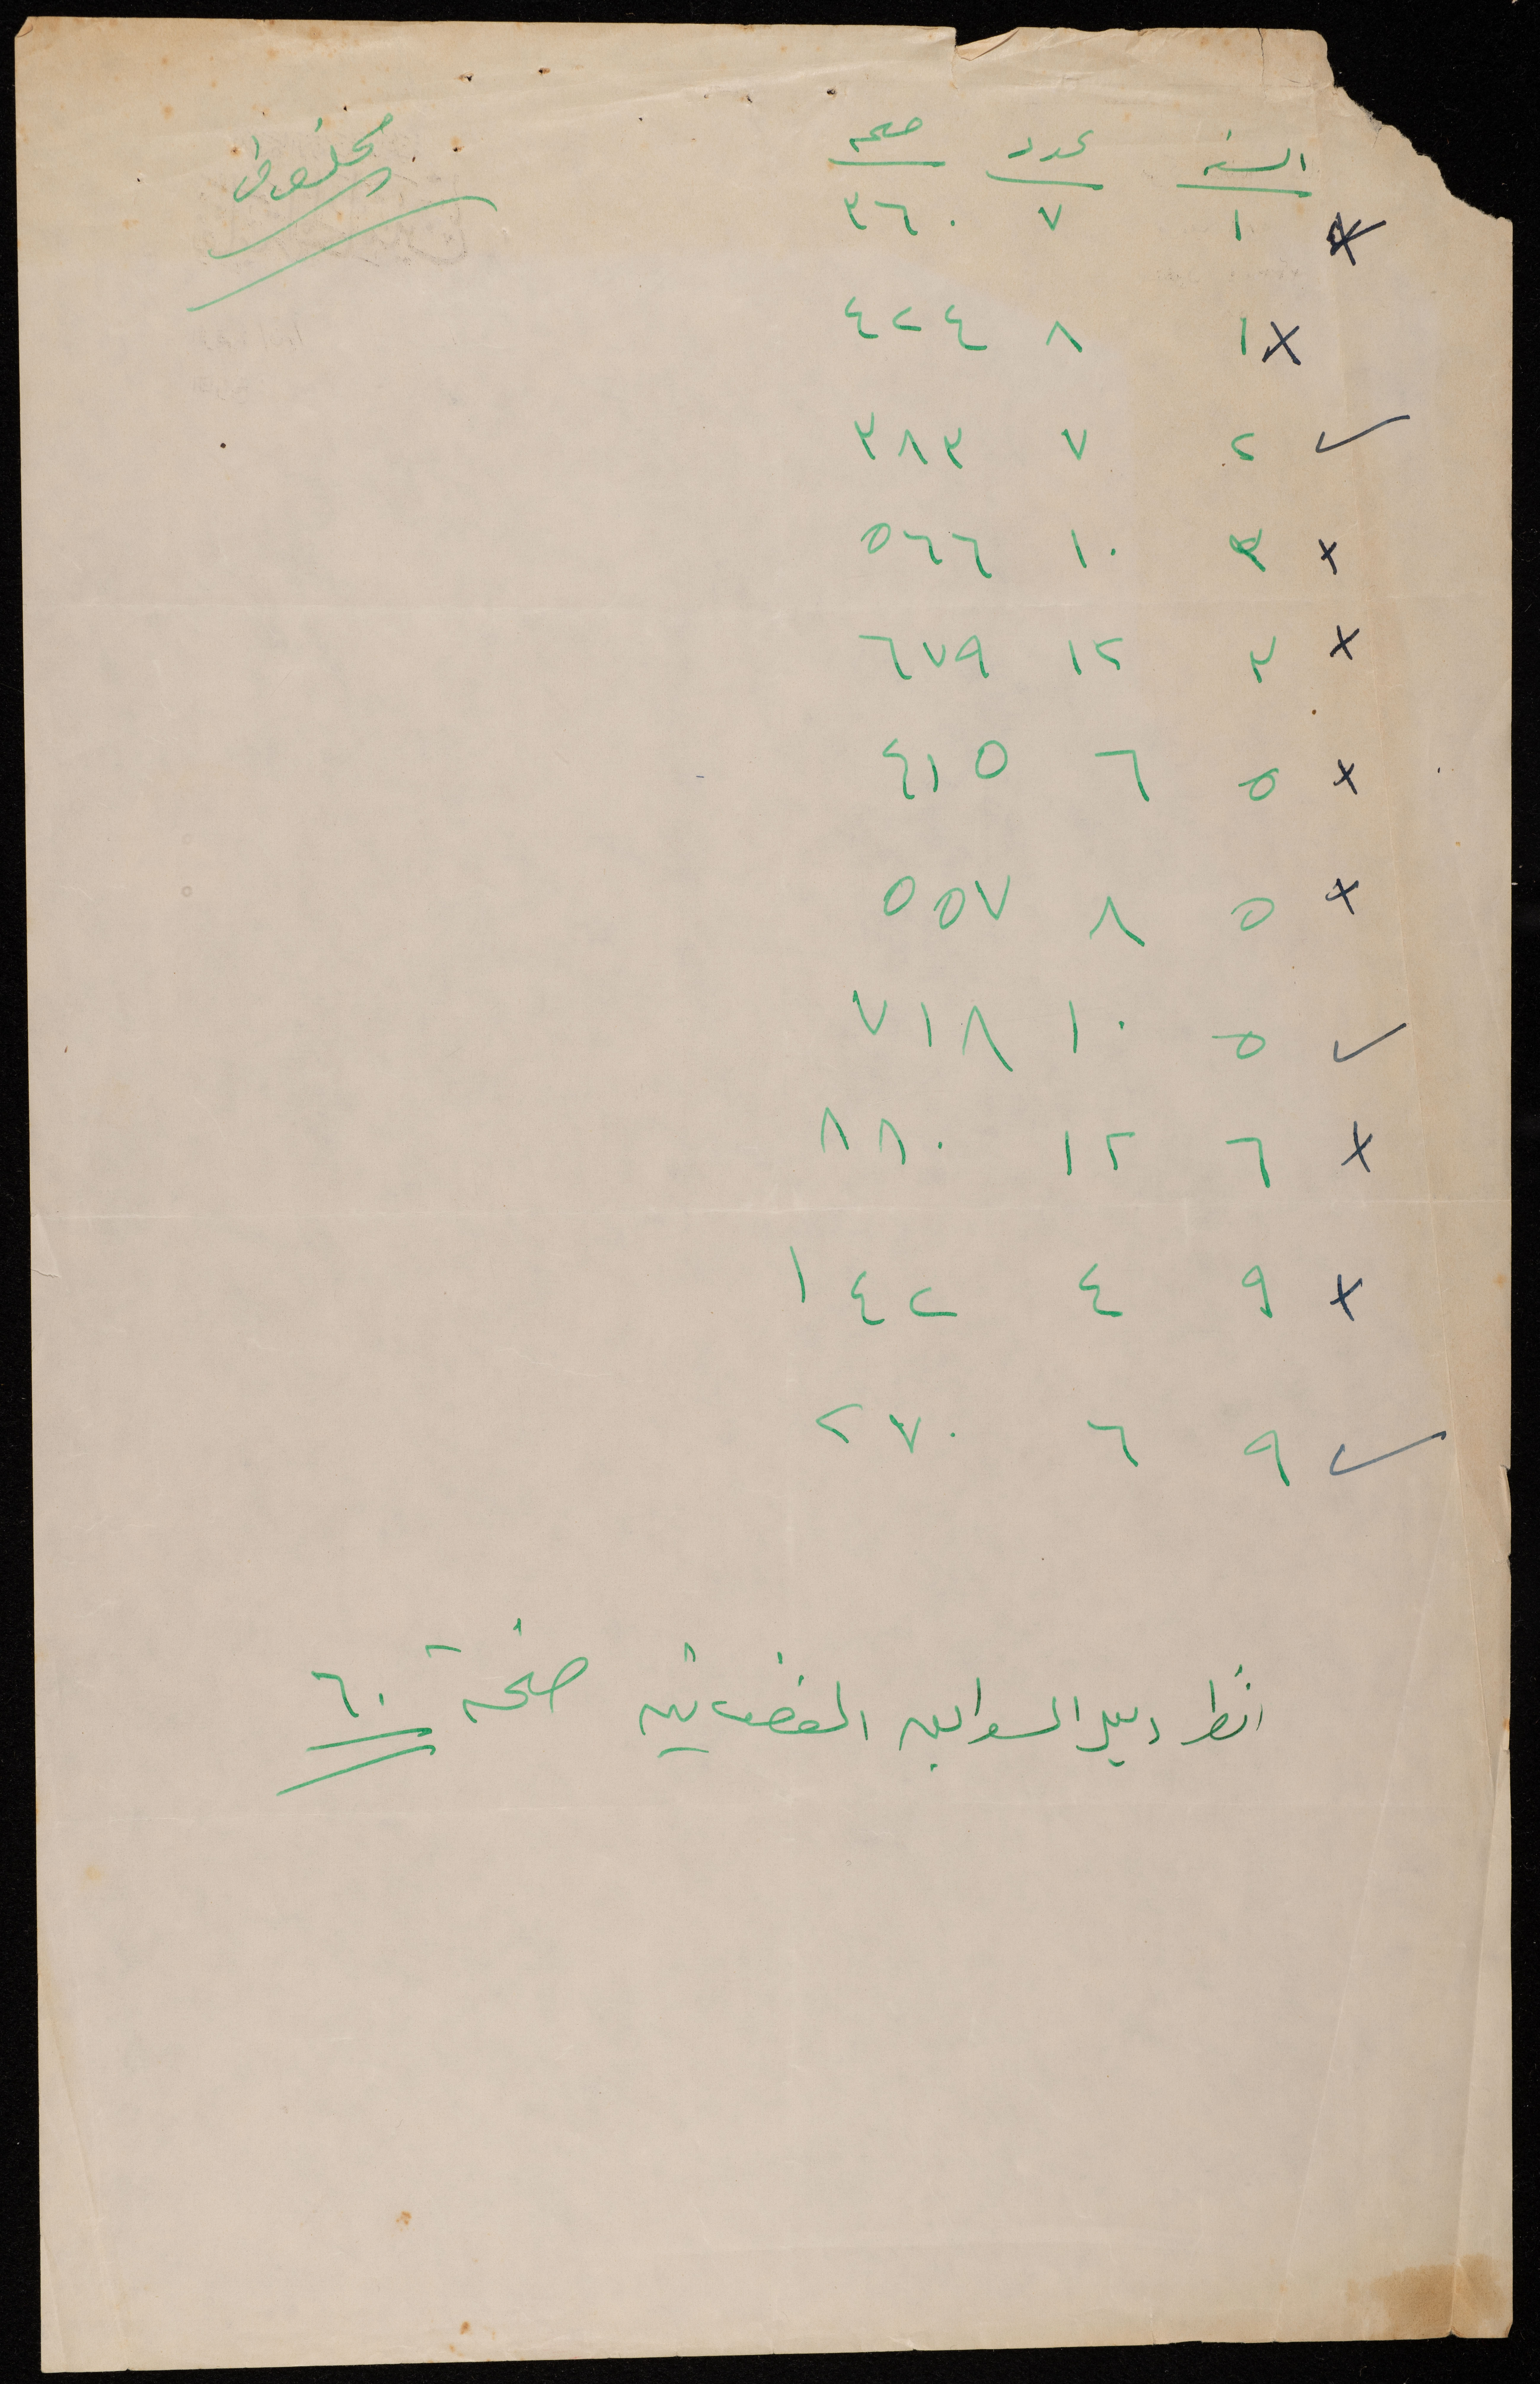 السنة عدد صفحة
× ١ ٧ ٣٦٠
× ١ ٨ ٤٢٤
✓ ٢ ٧ ٣٨٣
× ٣ ١٠ ٥٦٦
× ٣ ١٢ ٦٧٩
× ٥ ٦ ٤١٥
× ٥ ٨ ٥٥٧
✓ ٥ ١٠ ٧١٨
× ٦ ١٢ ٨٨٠
× ٩ ٤ ١٤٢
✓ ٩ ٦ ٢٧٠
انظر دليل السوابق القضائية صفحة ٦٠